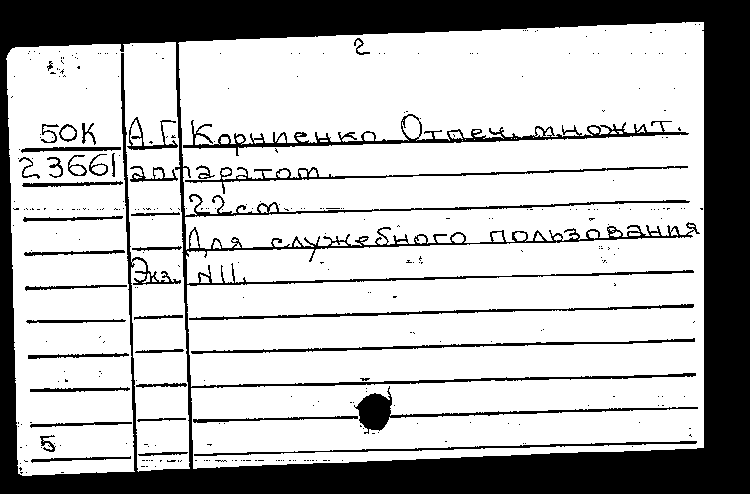 2
50К А.Г. Корниенко. Отпеч. множит.
23661 аппаратом.
22см.
Для служебного пользования
Экз. N11.
5